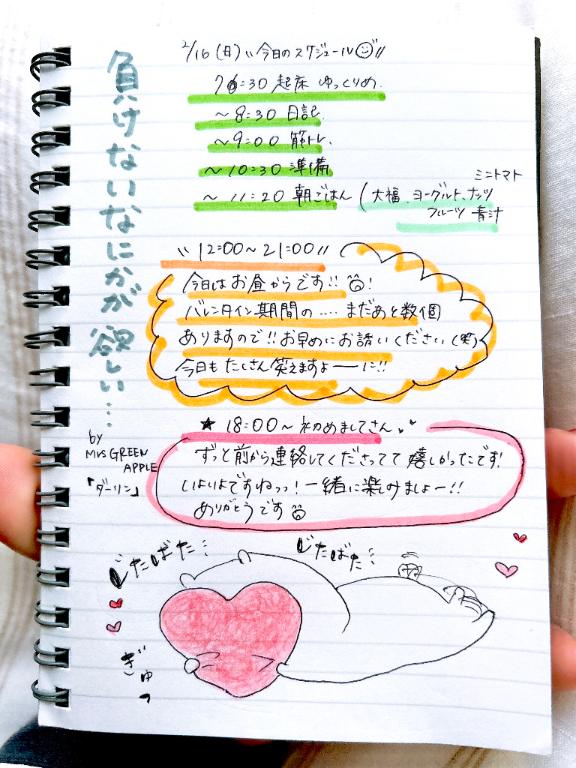 2/16(日)"今日のスケジュール☺"
7:30 起床 ゆっくりめ.
~8:30 日記.
~9:00 筋トレ.
~10:30 準備
~11:20 朝ごはん (大福、ヨーグルト、ナッツ
ミニトマト
フルーツ 青汁
負けないなにかが欲しい…
by
MRS GREEN
APPLE
「ダーリン」
"12:00~21:00"
今日はお昼からです!!!
バレンタイン期間の.... まだあと数個
ありますので!!お早めにお誘いください(笑)
今日もたくさん笑えますよーーに!!
★ 18:00~ 初めましてさん♥
ずっと前から連絡してくださってて嬉しかったです!
いよいよですねっっ!一緒に楽しみましょー!!
ありがとうです
じたばた…
じたばた…
ぎゅっ